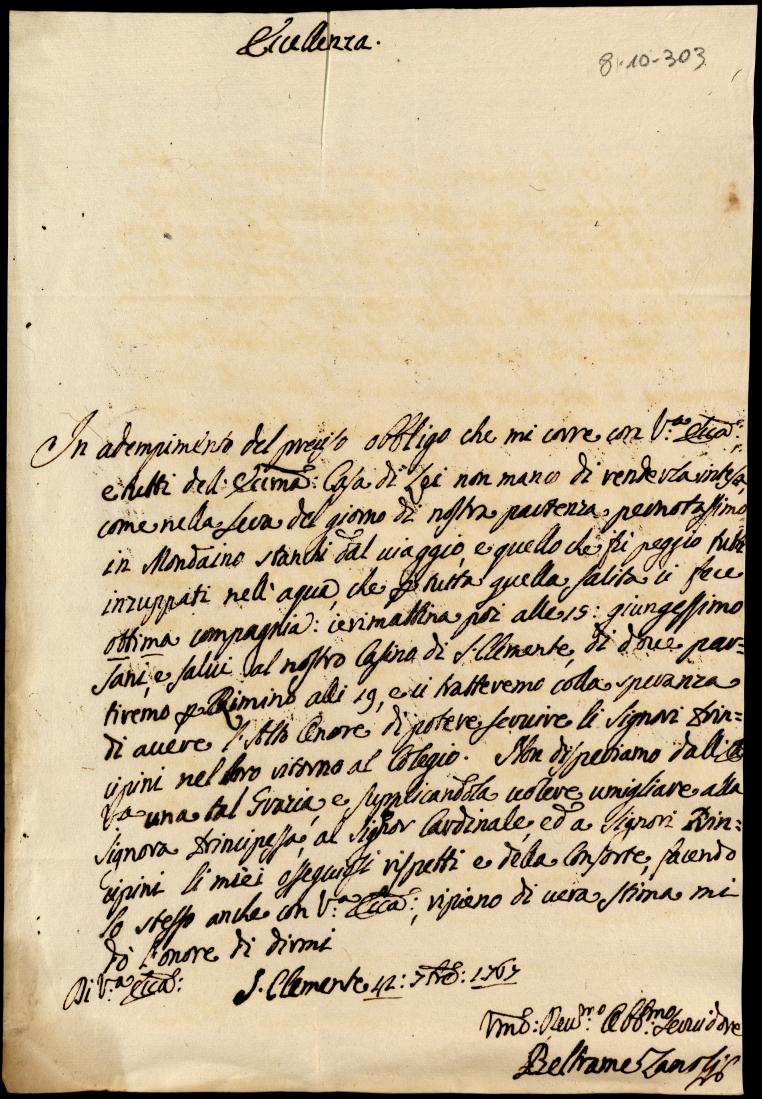 Eccellenza.
8-10-303
In adempimento del preciso obbligo che mi corre con V.ª Ecca:
e tutti dell: Eccma: Casa di Lei non manco di renderla intesa,
come nella sera del giorno di nostra partenza pernotassimo
in Mondaino stanchi dal viaggio, e quello che fù peggio tutti
inzuppati nell'aqua, che p tutta quella salita ci fece
ottima compagnia: ierimattina poi alle 15: giungessimo
sani, e salvi al nostro Casino di S. Clemente, di dove par=
tiremo p Rimino alli 19, e ci tratteremo colla speranza
di avere l'Alto Onore di potere servire li Signori Prin=
cipini nel loro ritorno al Colegio. Non disperiamo dall:
Va una tal Grazia, e supplicandola volere umigliare alla
Signora Principessa, al Signor Cardinale, ed a Signori Prin=
cipini li miei ossequiosi rispetti e della Consorte, facendo
lo stesso anche con V.ª Ecca:, ripieno di vera stima mi
dò l'onore di dirmi
Di V.ª Ecca: S. Clemente 12: 7bre: 1767
Vmo: Devmo: Obbmo: Servidore
Beltrame